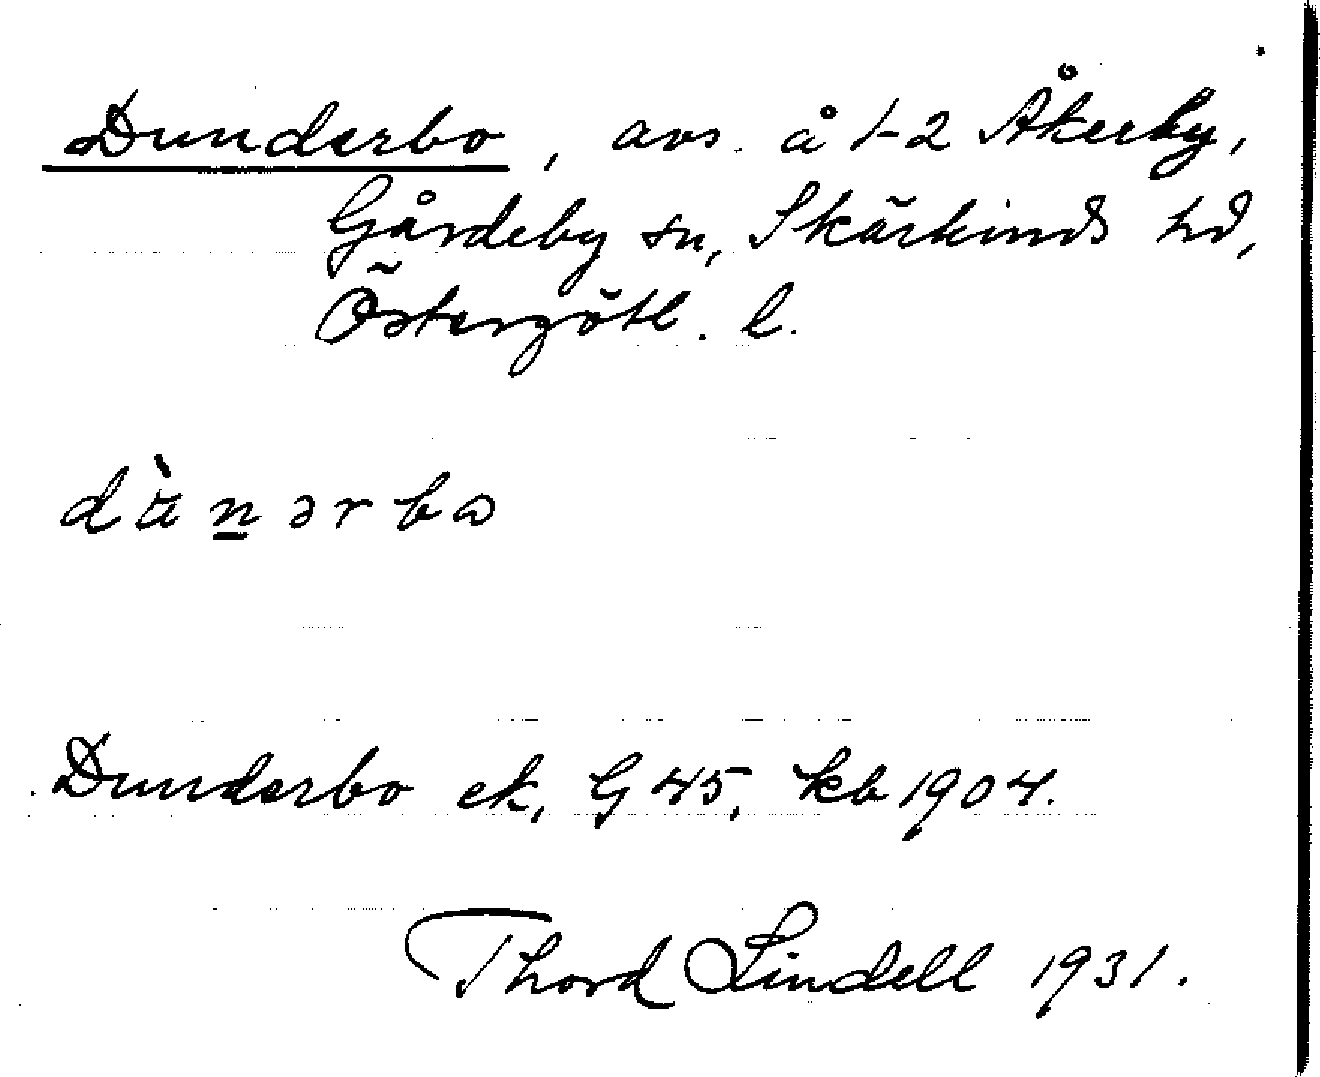 Dunderbo, avs. å 1-2 Åkerby,
Gårdeby sn, Skärkinds hd,
Östergötl. l.
dùnərbo
Dunderbo ek, G 45, kb 1904.
Thord Lindell 1931.